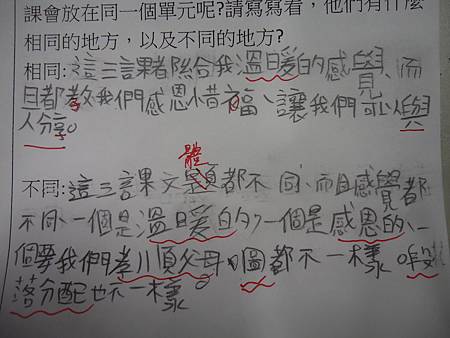 課會放在同一個單元呢?請寫寫看，他們有什麼
相同的地方，以及不同的地方?
相同:這三課都給我溫暖的感覺、而
且都教我們感恩惜福、讓我們可以與
人分享。
體
不同:這三課文題都不同、而且感覺都
不同、一個是溫暖的、一個是感恩的、一
個要我們孝順父母、圖都不一樣。段
落分配也不一樣。